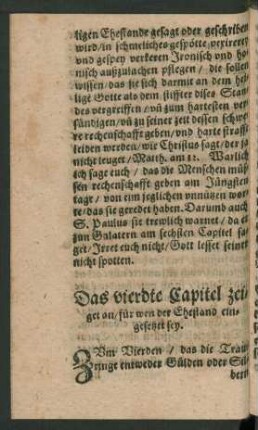 ligen Ehestande gesagt oder geschrieben
wird/in schmeliches gespötte, vexirerey
und gespey verkeren Ironisch und ho-
nisch außzulachen pflegen / die sollen
wissen/das sie sich darmit an dem hey-
lige Gotte als dem stiffter dises Stan-
des vergreiffen / vñ zum hartesten ver-
sündigen/vñ zu seiner zeit dessen schwe-
re rechenschafft geben/vnd harte straffe
leiden werden/wie Christus sagt/der ja
nicht leuger/Matth. am 12. Warlich
ich sage euch / das die Menschen müs-
sen rechenschafft geben am Jüngsten
tag / von eim jeglichen vnnützen wor-
te/das sie geredet haben. Darumb auch
S. Paulus sie trewlich warnet / da er
zun Galatern am sechsten Capitel sa-
get/Irret euch nicht/Gott lesset seiner
nicht spotten.
Das vierdte Capitel zei-
get an/für wen der Ehestand ein-
gesetzet sey.
ZVm Vierden / das die Traw-
ringe entweder Gülden oder Sil-
bern